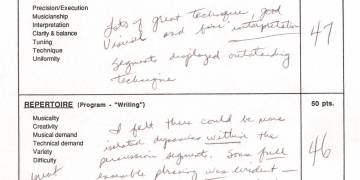 Precision/Execution
Musicianship
Interpretation
Clarity & balance
Tuning
Technique
Uniformity
Lots of great technique, good
visuals and basic interpretation
segments displayed outstanding
technique
47
REPERTOIRE (Program - "Writing")
50 pts.
Musicality
Creativity
Musical demand
Technical demand
Variety
Difficulty
I felt there could be more
isolated dynamics within the
percussion segments. Some full
ensemble phrasing was evident —
46